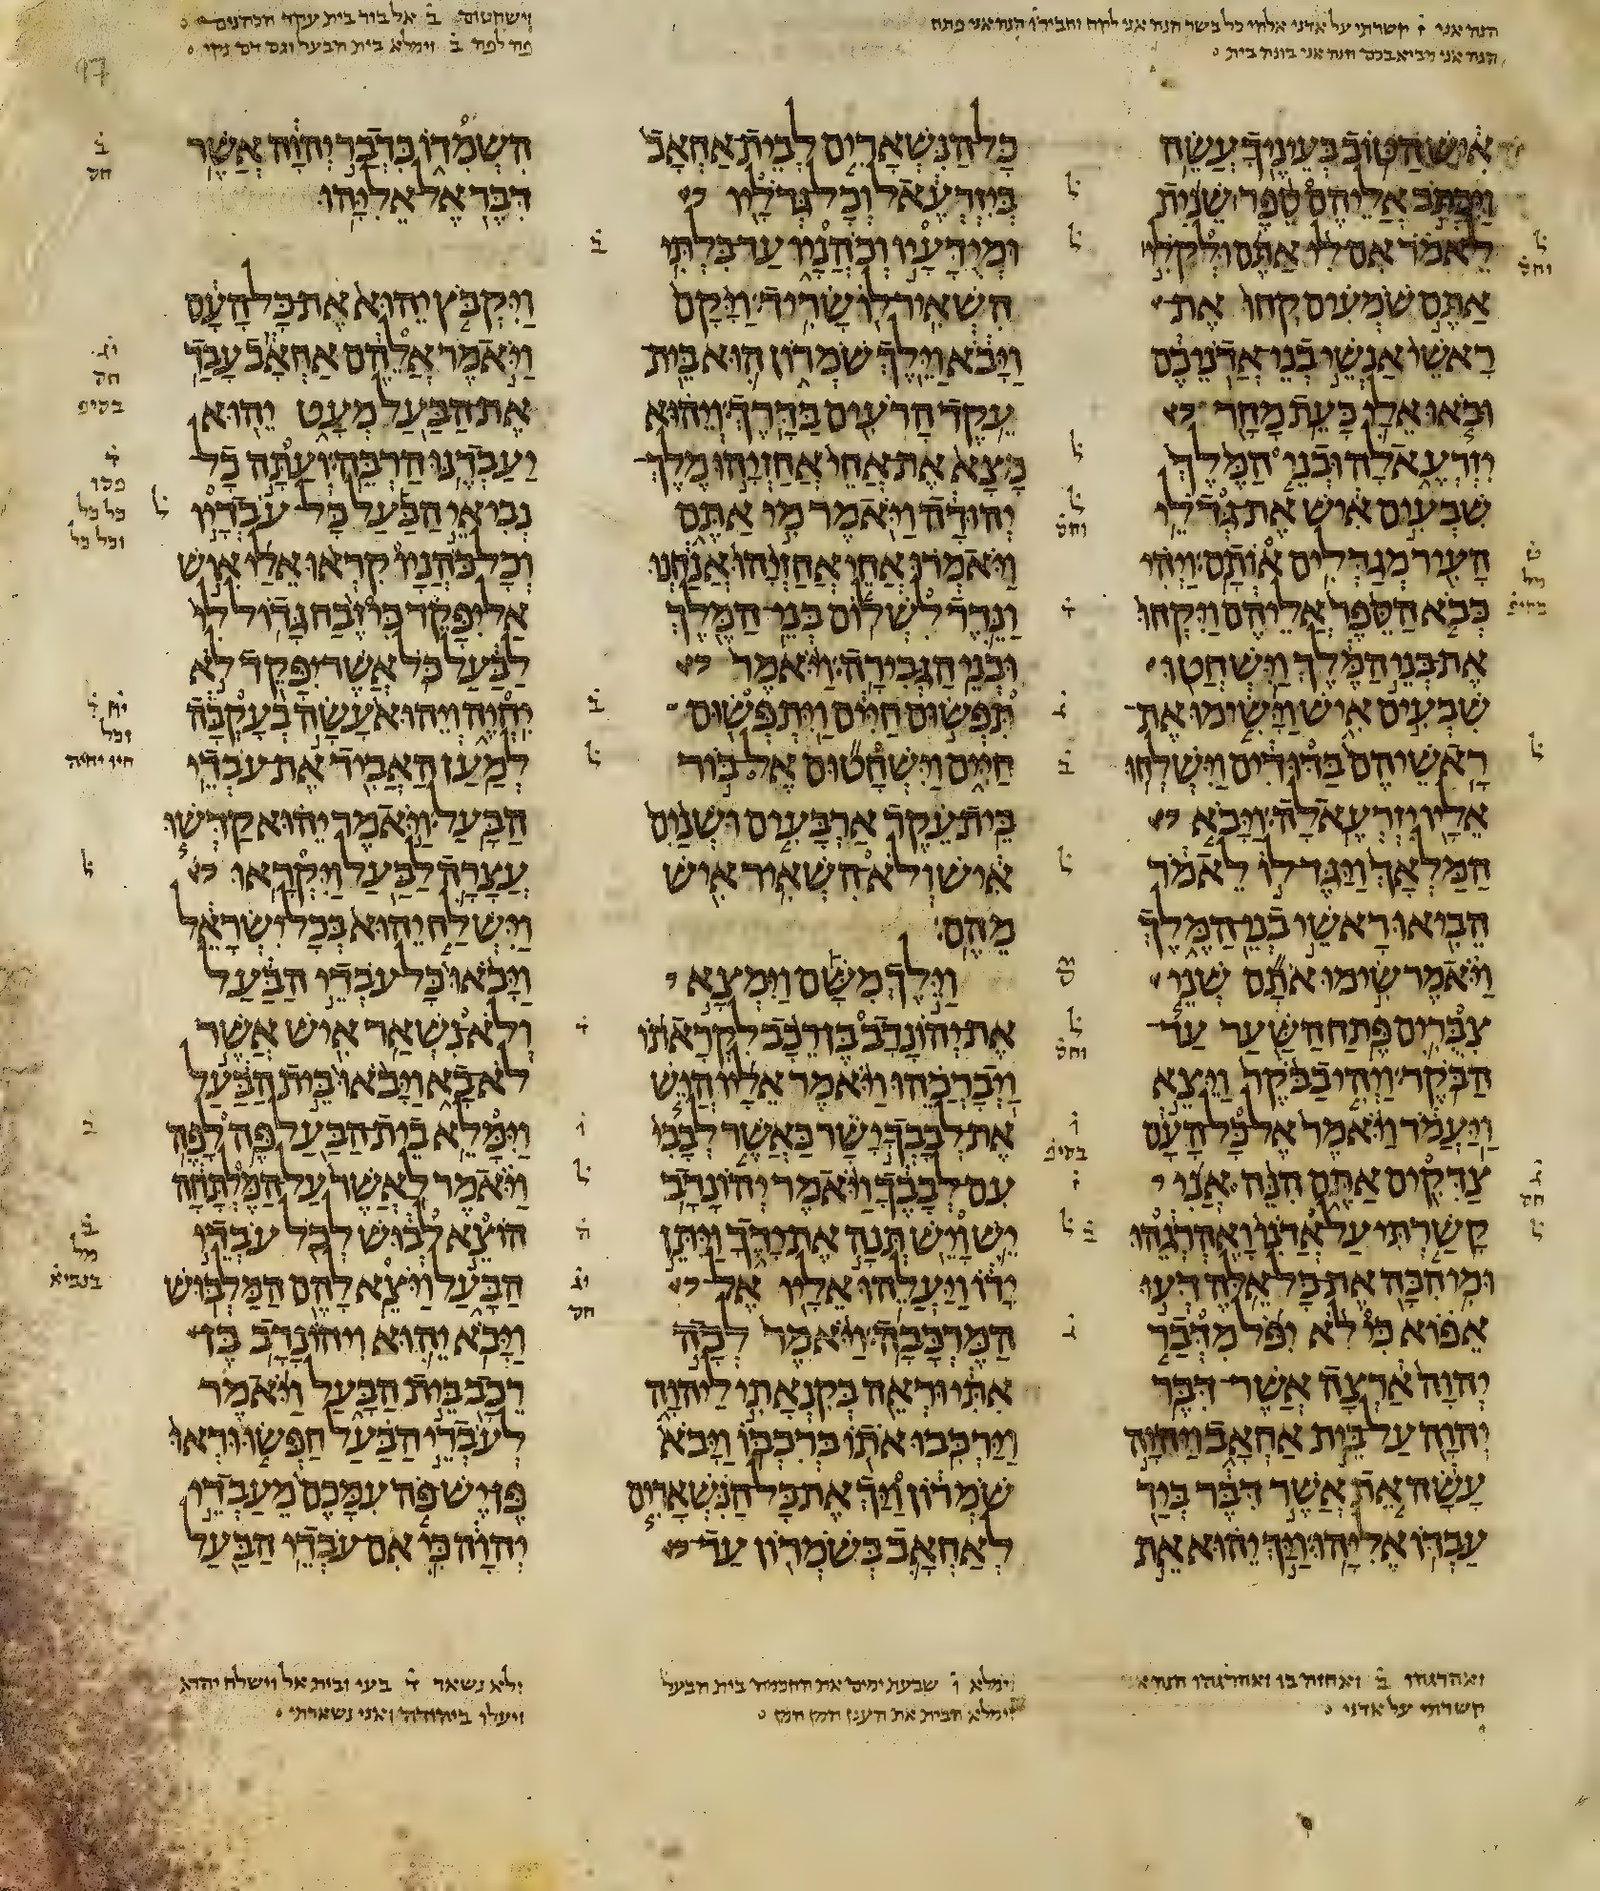 הנה אני ז קשרתי על אדני אלהי כל בשר הנה אני לקח וחבירו הנה אני פתח
הנה אני מביא בכם הנה אני בונה בית
וישחטום ב אל בור בית עקד הכהנים
פה לפה ב וימלא בית הבעל וגם דם נקי
איש הטוב בעיניך עשה
ויכתב אליהם ספר שנית
לאמר אם לי אתם ולקלי
אתם שמעים קחו את
ראשי אנשי בני אדניכם
ובאו אלי כעת מחר
יזרעאלה ובני המלך
שבעים איש את גדלי
העיר מגדלים אותם ויהי
כבא הספר אליהם ויקחו
את בני המלך וישחטו
שבעים איש וישימו את
ראשיהם בדודים וישלחו
אליו יזרעאלה ויבא
המלאך ויגד לו לאמר
הביאו ראשי בני המלך
ויאמר שימו אתם שני
צברים פתח השער עד
הבקר ויהי בבקר ויצא
ויעמד ויאמר אל כל העם
צדקים אתם הנה אני
קשרתי על אדני ואהרגהו
ומי הכה את כל אלה דעו
אפוא כי לא יפל מדבר
יהוה ארצה אשר דבר
יהוה על בית אחאב ויהוה
עשה את אשר דבר ביד
עבדו אליהו ויך יהוא את
כל הנשארים לבית אחאב
ביזרעאל וכל גדליו
ומידעיו וכהניו עד בלתי
השאיר לו שריד ויקם
ויבא וילך שמרון הוא בית
עקד הרעים בדרך ויהוא
מצא את אחי אחזיהו מלך
יהודה ויאמר מי אתם
ויאמרו אחי אחזיהו אנחנו
ונרד לשלום בני המלך
ובני הגבירה ויאמר
תפשום חיים ויתפשום
חיים וישחטום אל בור
בית עקד ארבעים ושנים
איש ולא השאיר איש
מהם
וילך משם וימצא
את יהונדב בן רכב לקראתו
ויברכהו ויאמר אליו היש
את לבבך ישר כאשר לבבי
עם לבבך ויאמר יהונדב
יש ויש תנה את ידך ויתן
ידו ויעלהו אליו אל
המרכבה ויאמר לכה
אתי וראה בקנאתי ליהוה
וירכבו אתו ברכבו ויבא
שמרון ויך את כל הנשארים
לאחאב בשמרון עד
השמדו כדבר יהוה אשר
דבר אל אליהו
ויקבץ יהוא את כל העם
ויאמר אלהם אחאב עבד
את הבעל מעט יהוא
יעבדנו הרבה ועתה כל
נביאי הבעל כל עבדיו
וכל כהניו קראו אלי איש
אל יפקד כי זבח גדול לי
לבעל כל אשר יפקד לא
יחיה ויהוא עשה בעקבה
למען האביד את עבדי
הבעל ויאמר יהוא קדשו
עצרה לבעל ויקראו
וישלח יהוא בכל ישראל
ויבאו כל עבדי הבעל
ולא נשאר איש אשר
לא בא ויבאו בית הבעל
וימלא בית הבעל פה לפה
ויאמר לאשר על המלתחה
הוצא לבוש לכל עבדי
הבעל ויצא להם המלבוש
ויבא יהוא ויהונדב בן
רכב בית הבעל ויאמר
לעבדי הבעל חפשו וראו
פן יש פה עמכם מעבדי
יהוה כי אם עבדי הבעל
ואהרגהו ב ואחזה בו ואהרגהו הנה אני
קשרתי על אדני
וימלא ו שבעת ימים את החכמה בית הבעל
וימלא הבית את הענן
ולא נשאר ד בעי ובית אל וישלח יהוא
ויעלו ביהודה ואני נשארתי